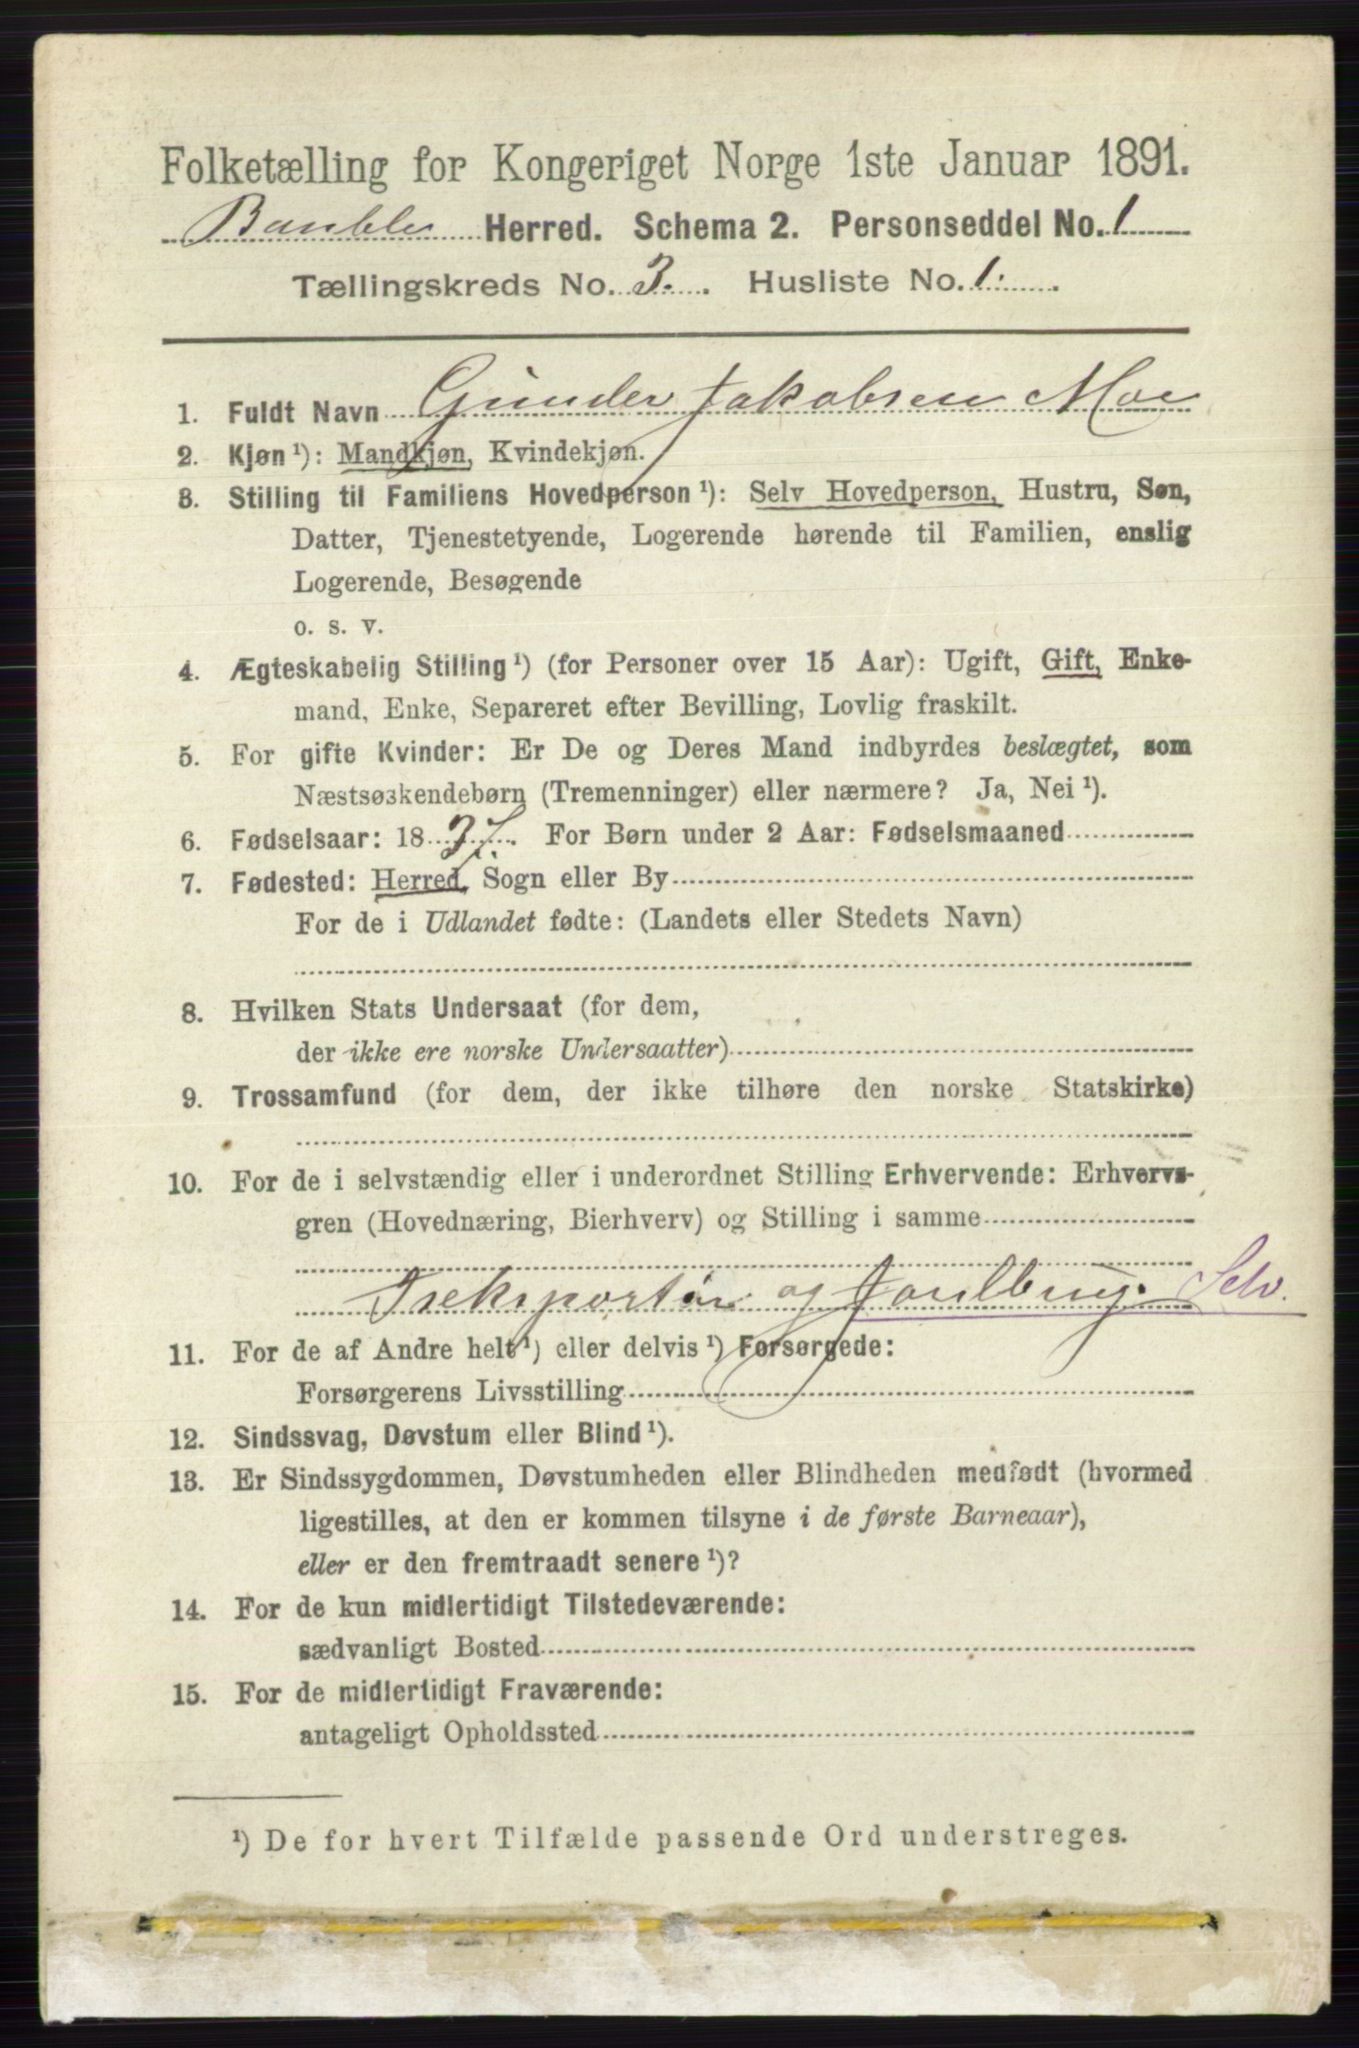 Folketælling for Kongeriget Norge 1ste Januar 1891.
Bamble Herred. Schema 2. Personseddel No. 1
Tællingskreds No. 3. Husliste No. 1.
1. Fuldt Navn Gunder Jakobsen Moe
2. Kjøn ¹): Mandkjøn, Kvindekjøn.
3. Stilling til Familiens Hovedperson ¹): Selv Hovedperson, Hustru, Søn,
Datter, Tjenestetyende, Logerende hørende til Familien, enslig
Logerende, Besøgende
o. s. v.
4. Ægteskabelig Stilling ¹) (for Personer over 15 Aar): Ugift, Gift, Enke-
mand, Enke, Separeret efter Bevilling, Lovlig fraskilt.
5. For gifte Kvinder: Er De og Deres Mand indbyrdes beslægtet, som
Næstsøskendebørn (Tremenninger) eller nærmere? Ja, Nei ¹).
6. Fødselsaar: 1837. For Børn under 2 Aar: Fødselsmaaned
7. Fødested: Herred, Sogn eller By
For de i Udlandet fødte: (Landets eller Stedets Navn)
8. Hvilken Stats Undersaat (for dem,
der ikke ere norske Undersaatter)
9. Trossamfund (for dem, der ikke tilhøre den norske Statskirke)
10. For de i selvstændig eller i underordnet Stilling Erhvervende: Erhvervs-
gren (Hovednæring, Bierhverv) og Stilling i samme
og Jordbrug. Selv.
11. For de af Andre helt ¹) eller delvis ¹) Forsørgede:
Forsørgerens Livsstilling
12. Sindssvag, Døvstum eller Blind ¹).
13. Er Sindssygdommen, Døvstumheden eller Blindheden medfødt (hvormed
ligestilles, at den er kommen tilsyne i de første Barneaar),
eller er den fremtraadt senere ¹)?
14. For de kun midlertidigt Tilstedeværende:
sædvanligt Bosted
15. For de midlertidigt Fraværende:
antageligt Opholdssted
¹) De for hvert Tilfælde passende Ord understreges.